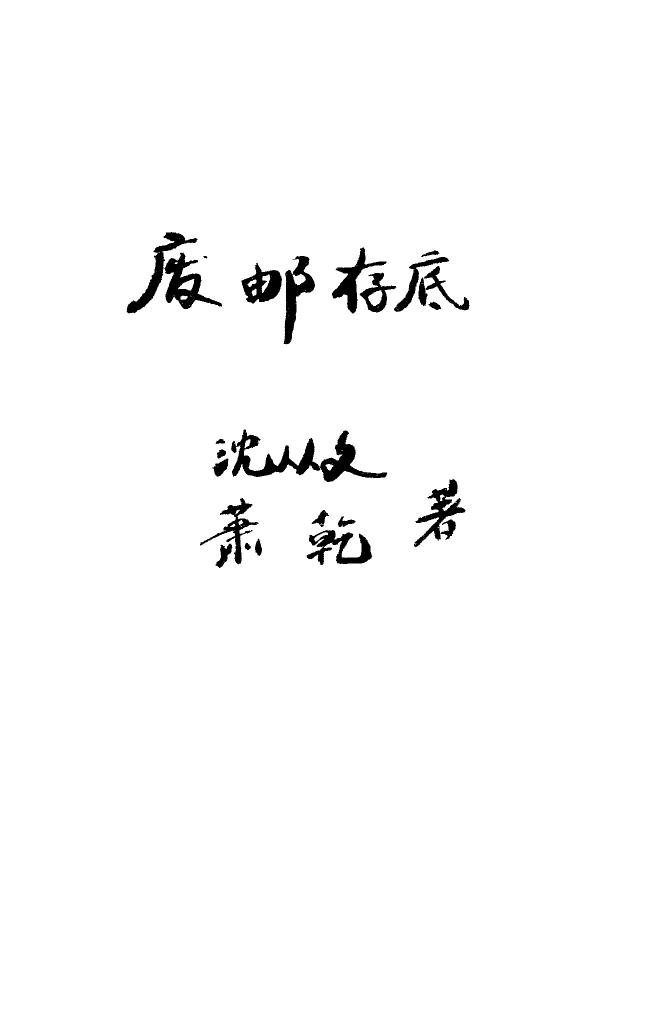 废邮存底
沈从文
萧乾 著